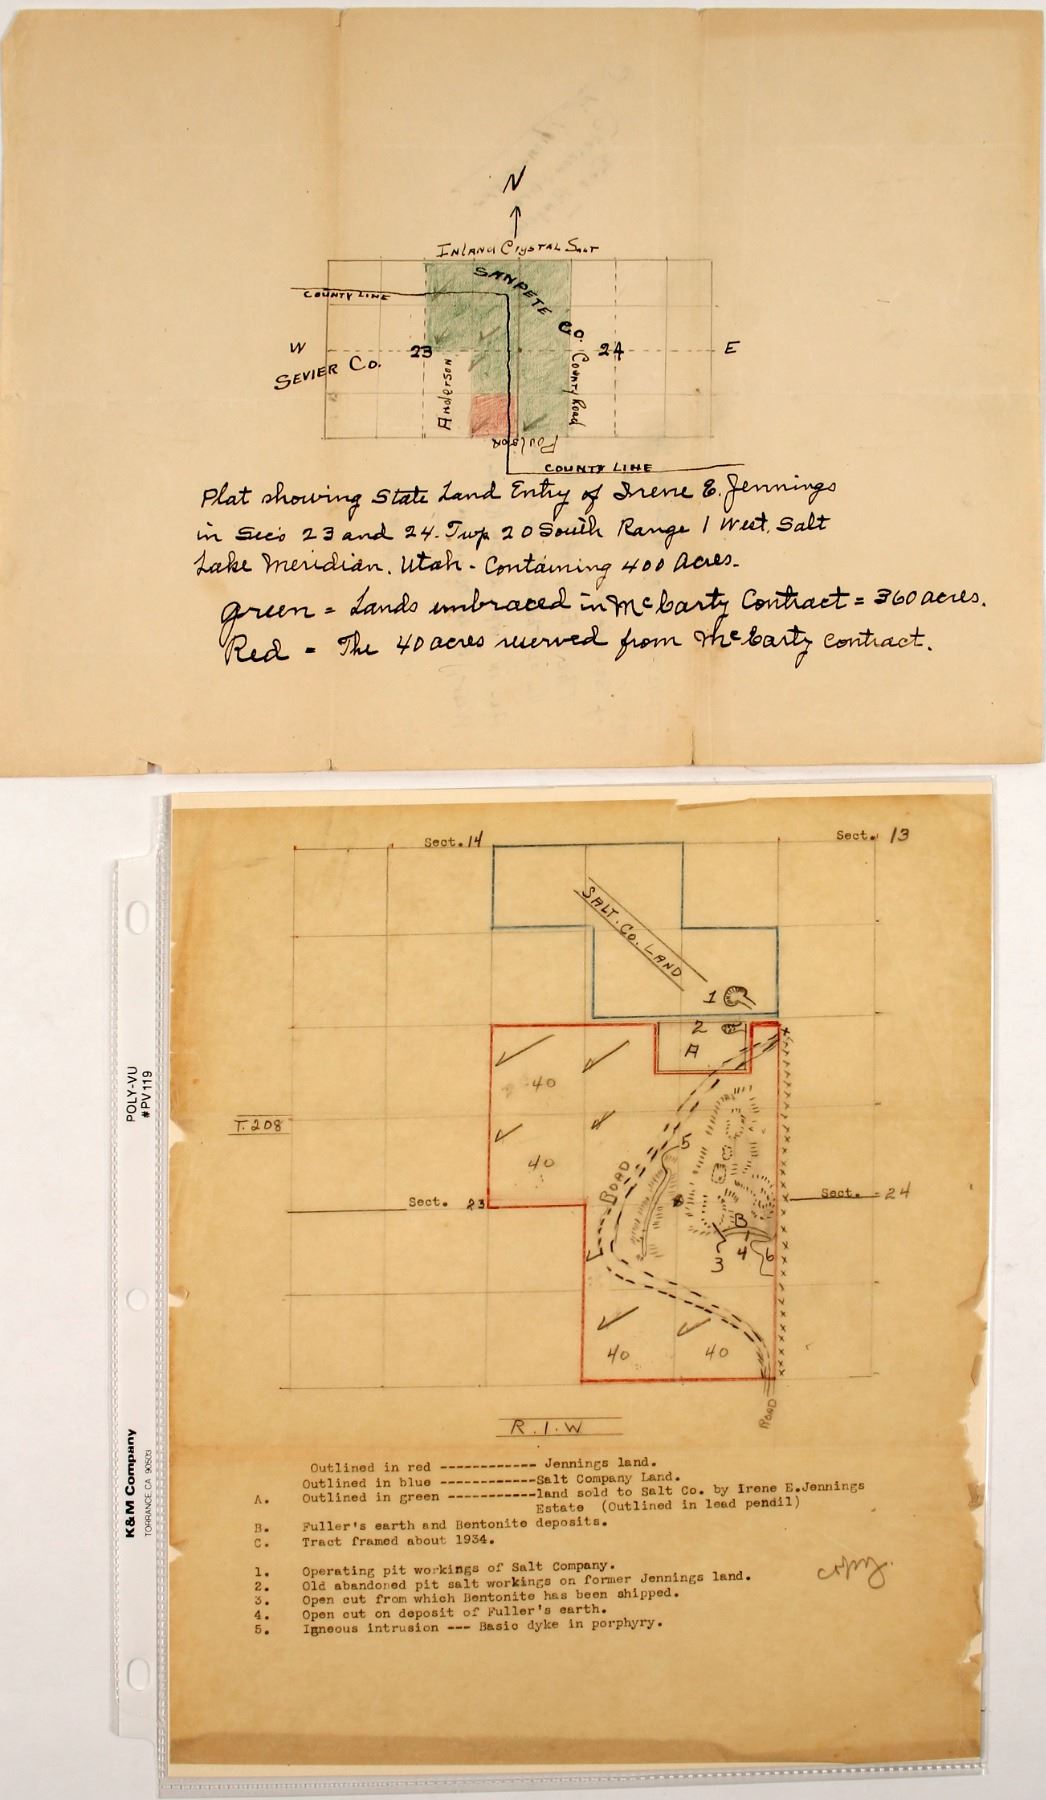 N
INLAND CRYSTAL SALT
SANPETE CO.
COUNTY LINE
W
23
24
E
SEVIER CO.
Anderson
County Road
Poulson
COUNTY LINE
Plat showing State Land Entry of Irene E. Jennings
in Sec's 23 and 24. Twp 20 South Range 1 West, Salt
Lake Meridian, Utah - Containing 400 Acres.
Green = Lands embraced in McCarty Contract = 360 acres.
Red = The 40 acres reserved from McCarty contract.
Sect. 14
Sect. 13
SALT. CO. LAND
1
2
A
40
40
T. 20S
ROAD
5
Sect. 23
Sect. 24
B
3
4
6
40
40
ROAD
R. 1. W
Outlined in red ------------ Jennings land.
Outlined in blue ------------Salt Company Land.
A. Outlined in green -----------land sold to Salt Co. by Irene E.Jennings
Estate (Outlined in lead pendil)
B. Fuller's earth and Bentonite deposits.
C. Tract framed about 1934.
1. Operating pit workings of Salt Company.
2. Old abandoned pit salt workings on former Jennings land.
3. Open cut from which Bentonite has been shipped.
4. Open cut on deposit of Fuller's earth.
5. Igneous intrusion --- Basic dyke in porphyry.
copy.
POLY-VU
#PV119
K&M Company
TORRANCE, CA 90503